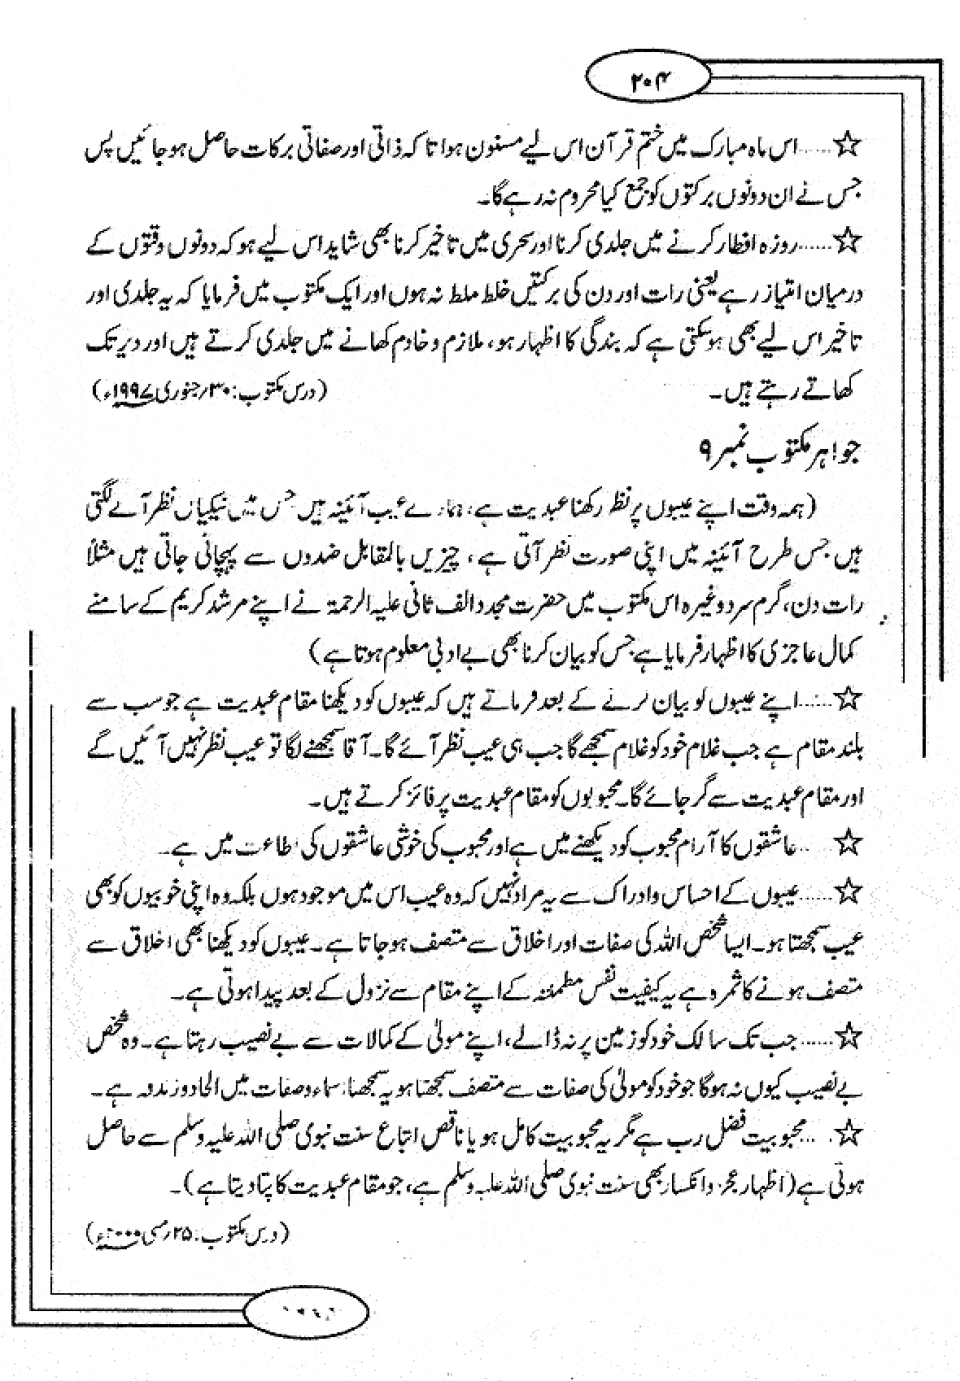 ۲۰۴
☆......اس ماہ مبارک میں ختم قرآن اس لیے مسنون ہوا تاکہ ذاتی اور صفاتی برکات حاصل ہو جائیں پس
جس نے ان دونوں برکتوں کو جمع کیا محروم نہ رہے گا۔
☆......روزہ افطار کرنے میں جلدی کرنا اور سحری میں تاخیر کرنا بھی شاید اس لیے ہو کہ دونوں وقتوں کے
درمیان امتیاز رہے یعنی رات اور دن کی برکتیں خلط ملط نہ ہوں اور ایک مکتوب میں فرمایا کہ یہ جلدی اور
تاخیر اس لیے بھی ہو سکتی ہے کہ بندگی کا اظہار ہو، ملازم و خادم کھانے میں جلدی کرتے ہیں اور دیر تک
کھاتے رہتے ہیں۔ (درس مکتوب: ۳۰؍جنوری ۱۹۹۷ء)
جواہر مکتوب نمبر ۹
(ہمہ وقت اپنے عیبوں پر نظر رکھنا عبدیت ہے، ہمارے عیب آئینہ ہیں جس میں نیکیاں نظر آنے لگتی
ہیں جس طرح آئینہ میں اپنی صورت نظر آتی ہے، چیزیں بالمقابل ضدوں سے پہچانی جاتی ہیں مثلاً
رات دن، گرم سرد وغیرہ اس مکتوب میں حضرت مجدد الف ثانی علیہ الرحمۃ نے اپنے مرشد کریم کے سامنے
کمال عاجزی کا اظہار فرمایا ہے جس کو بیان کرنا بھی بے ادبی معلوم ہوتا ہے)
☆......اپنے عیبوں کو بیان کرنے کے بعد فرماتے ہیں کہ عیبوں کو دیکھنا مقام عبدیت ہے جو سب سے
بلند مقام ہے جب غلام خود کو غلام سمجھے گا جب ہی عیب نظر آئے گا۔ آقا سمجھنے لگا تو عیب نظر نہیں آئیں گے
اور مقام عبدیت سے گر جائے گا۔ محبوبوں کو مقام عبدیت پر فائز کرتے ہیں۔
☆......عاشقوں کا آرام محبوب کو دیکھنے میں ہے اور محبوب کی خوشی عاشقوں کی طاعت میں ہے۔
☆......عیبوں کے احساس و ادراک سے یہ مراد نہیں کہ وہ عیب اس میں موجود ہوں بلکہ وہ اپنی خوبیوں کو بھی
عیب سمجھتا ہو۔ ایسا شخص اللہ کی صفات اور اخلاق سے متصف ہو جاتا ہے۔ عیبوں کو دیکھنا بھی اخلاق سے
متصف ہونے کا ثمرہ ہے یہ کیفیت نفس مطمئنہ کے اپنے مقام سے نزول کے بعد پیدا ہوتی ہے۔
☆......جب تک سالک خود کو زمین پر نہ ڈالے، اپنے مولیٰ کے کمالات سے بے نصیب رہتا ہے۔ وہ شخص
بے نصیب کیوں نہ ہوگا جو خود کو مولیٰ کی صفات سے متصف سمجھتا ہو یہ سمجھنا، اسماء و صفات میں الحاد و زندقہ ہے۔
☆......محبوبیت فضل رب ہے مگر یہ محبوبیت کامل ہو یا ناقص اتباع سنت نبوی صلی اللہ علیہ وسلم سے حاصل
ہوتی ہے (اظہار عجز و انکسار بھی سنت نبوی صلی اللہ علیہ وسلم ہے، جو مقام عبدیت کا پتا دیتا ہے)۔
(درس مکتوب: ۲۵؍مئی ۲۰۰۰ء)